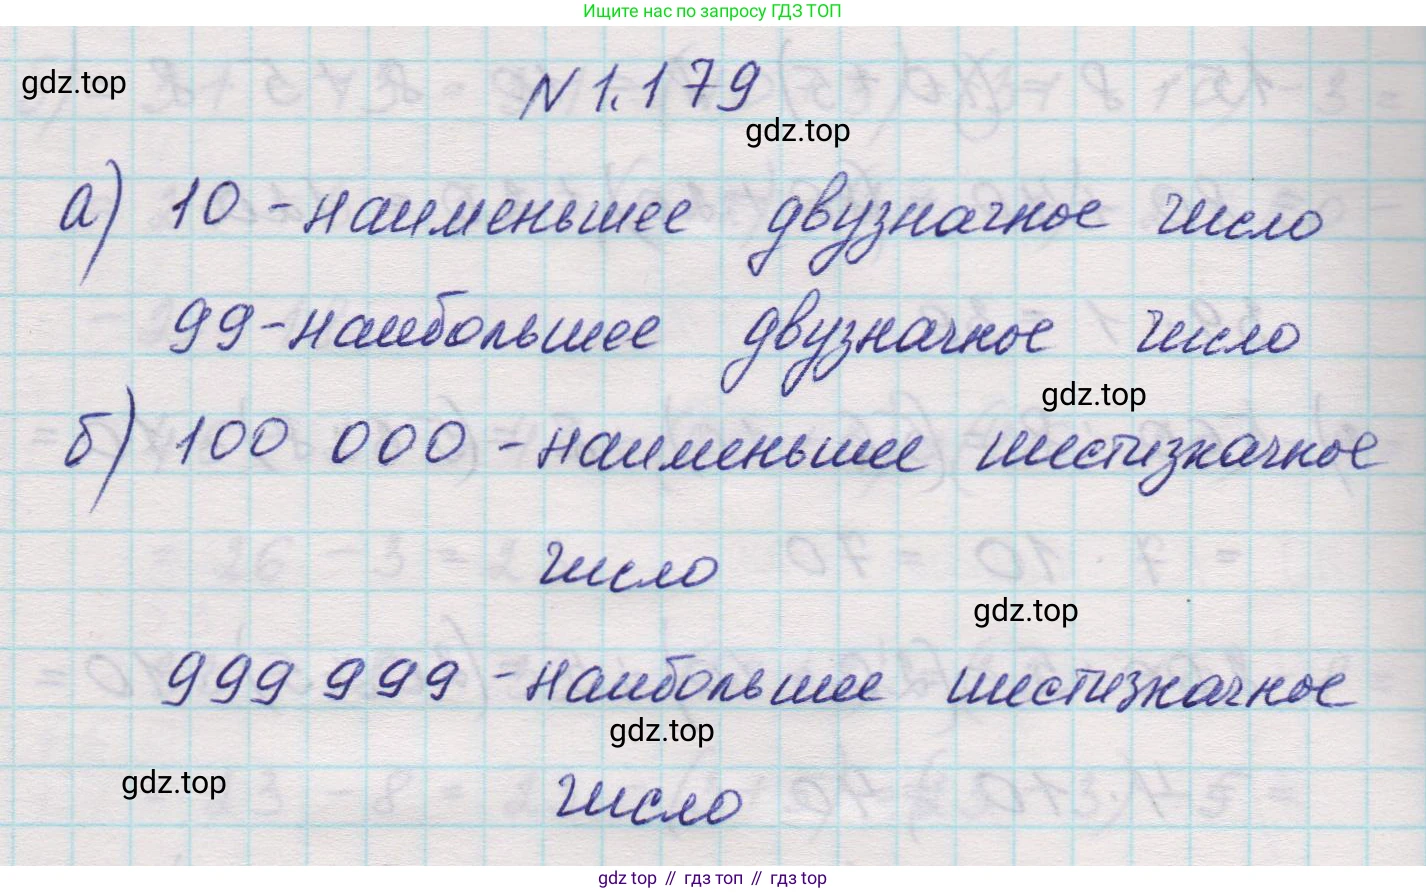 Ищите нас по запросу ГДЗ ТОП
gdz.top
N 1.179
gdz.top
а) 10 - наименьшее двузначное число
99 - наибольшее двузначное число
gdz.top
б) 100 000 - наименьшее шестизначное
число
gdz.top
999 999 - наибольшее шестизначное
gdz.top
gdz.top
число
gdz top // гдз топ // gdz top